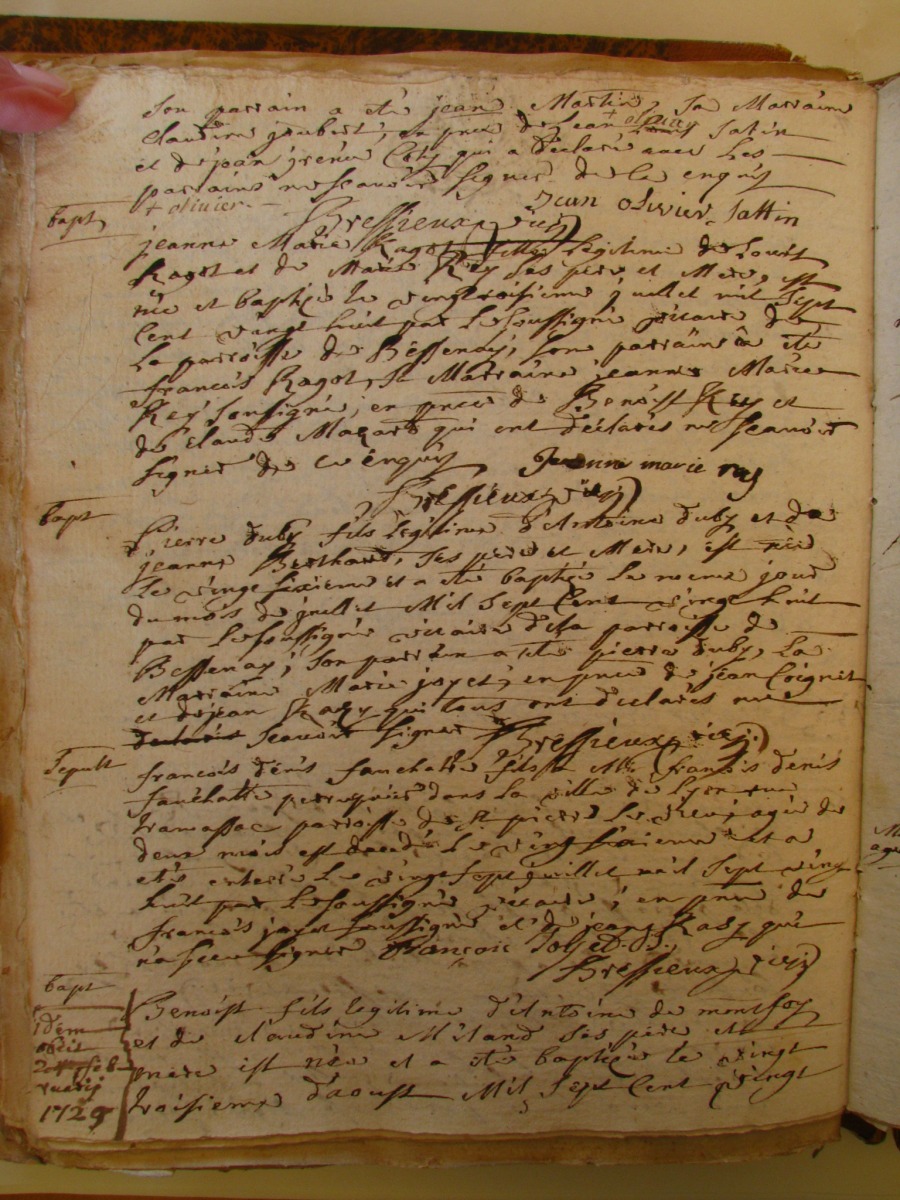 son parrain a eté jean Martin, Sa Marraine
Claudine joubert, en pnce de Jean + olivier Satin
et de jean qui a déclaré avec les
parrains ne scavoir signer de ce enquis
+ olivier
Jean olivier Sattin
Bressieux vic
bapt
jeanne Marie Ragot fille legitime de Louis
Ragot et de Marie Rey ses pere et Mere, est
née et baptizée le vingtroisieme juillet mil Sept
Cent vingt huit par Le Soussigné vicaire de
La parroisse de Bessenay, Son parrain a été
francois Ragot, Sa Marraine jeanne Marie
Rey Soussignée, en pnce de Benoist Rey et
de claude Mazard qui ont déclarés ne scavoir
signer de ce enquis
Jeanne marie rey
Bressieux vic
bapt
Pierre duby fils legitime d'Antoine duby et de
jeanne Berthard, Ses pere et Mere, est née
le vingt sixieme et a eté baptizé le meme jour
du mois de juillet Mil Sept Cent vingt huit
par Le Soussigné vicaire de la parroisse de
Bessenay, Son parrain a eté pierre duby, La
Marraine Marie joyet, en pnce de jean Coignet
et de jean Razy qui tous ont déclarés ne
declarés Scavoir Signer
Bressieux vic
Sepult
francois denis fauchatte fils a Mr françois denis
fauchatte perruquier dans La ville de Lyon rue
tramassac parroisse de St pierre Le vieux, agé de
deux mois est decedé Le vingt sixieme et a
etés enterré Le vingt sept juillet mil Sept vingt
huit par Le Soussigné vicaire, en pnce de
francois joyet Soussigné et de jean Razy qui
n'a sceu signer
françois Joyed
Bressieux vic
bapt
idem
obiit
1729
Benoist fils legitime d'Antoine de montfoy
et de claudine Miland Ses pere et
mere est née et a eté baptizé le vingt
troisieme d'aoust Mil Sept Cent vingt